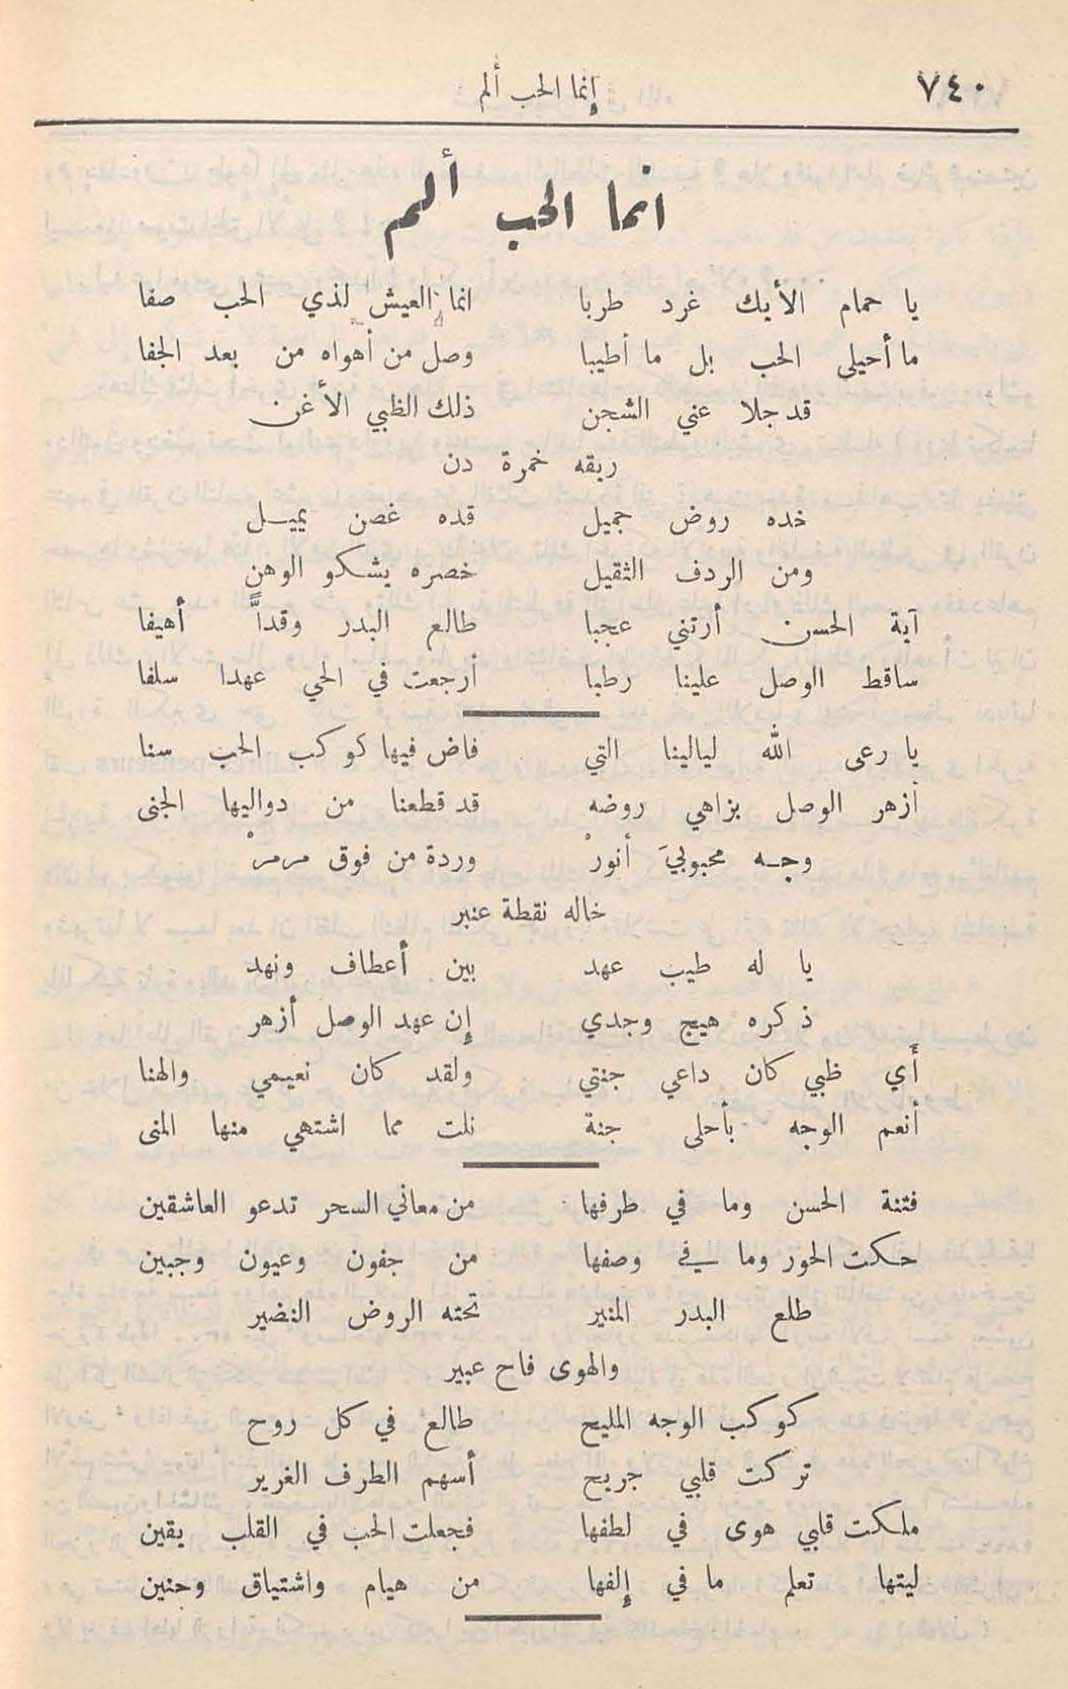 ٧٤٠ إنما الحب ألم
انما الحب ألم
يا حمام الأيك غرد طربا انما العيش لذي الحب صفا
ما أحيلى الحب بل ما أطيبا وصل من أهواه من بعد الجفا
قد جلا عني الشجن ذلك الظبي الأغن
ريقه خمرة دن
خده روض جميل قده غصن يميل
ومن الردف الثقيل خصره يشكو الوهن
آية الحسن أرتني عجبا طالع البدر وقداً أهيفا
ساقط الوصل علينا رطبا أرجعت في الحي عهدا سلفا
يا رعى الله ليالينا التي فاض فيها كوكب الحب سنا
أزهر الوصل بزاهي روضه قد قطعنا من دواليها الجنى
وجه محبوبيَ أنورْ وردة من فوق مرمرْ
خاله نقطة عنبر
يا له طيب عهد بين أعطاف ونهد
ذكره هيج وجدي إن عهد الوصل أزهر
أي ظبي كان داعي جنتي ولقد كان نعيمي والهنا
أنعم الوجه بأحلى جنة نلت مما اشتهي منها المنى
فتنة الحسن وما في طرفها من معاني السحر تدعو العاشقين
حكت الحور وما في وصفها من جفون وعيون وجبين
طلع البدر المنير تحته الروض النضير
والهوى فاح عبير
كوكب الوجه المليح طالع في كل روح
تركت قلبي جريح أسهم الطرف الغرير
ملكت قلبي هوى في لطفها فجعلت الحب في القلب يقين
ليتها تعلم ما في إلفها من هيام واشتياق وحنين